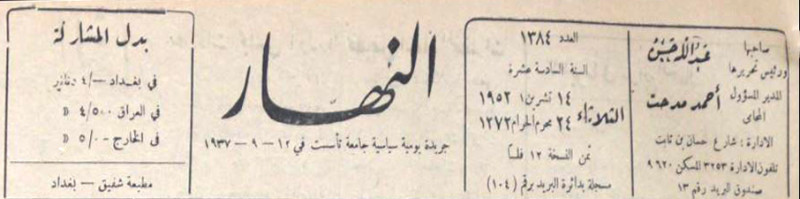 صاحبها
ورئيس تحريرها
عبد الله حسن
المدير المسؤول
المحامي
أحمد مدحت
الادارة : شارع حسان بن ثابت
تلفون الادارة ٣٢٥٣ المسكن ٩٦٢٠
صندوق البريد رقم ١٣
العدد ١٣٨٤
السنة السادسة عشرة
الثلاثاء
١٤ تشرين ١ ١٩٥٢
٢٤ محرم الحرام ١٣٧٢
ثمن النسخة ١٢ فلساً
مسجلة بدائرة البريد برقم (١٠٤)
النهار
جريدة يومية سياسية جامعة تأسست في ١٢ – ٩ – ١٩٣٧
بدل المشاركة
في بغداد –/٤ دنانير
في العراق ٤/٥٠٠ »
في الخارج ٥/٠٠ »
مطبعة شفيق – بغداد